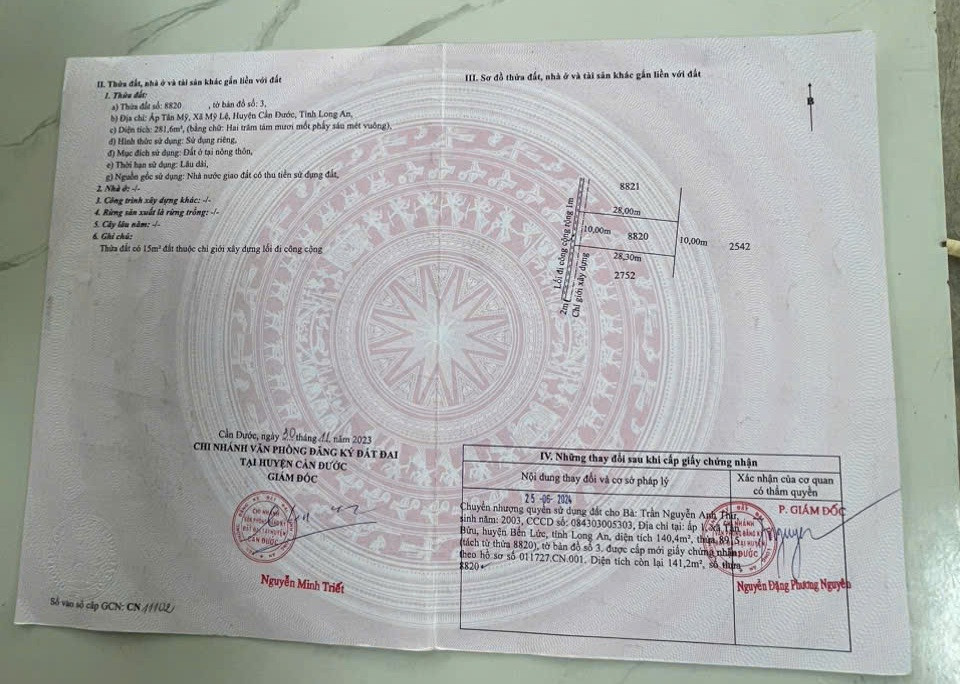 II. Thửa đất, nhà ở và tài sản khác gắn liền với đất
1. Thửa đất:
a) Thửa đất số: 8820 , tờ bản đồ số: 3,
b) Địa chỉ: Ấp Tân Mỹ, Xã Mỹ Lệ, Huyện Cần Đước, Tỉnh Long An,
c) Diện tích: 281,6m², (bằng chữ: Hai trăm tám mươi mốt phẩy sáu mét vuông),
d) Hình thức sử dụng: Sử dụng riêng,
đ) Mục đích sử dụng: Đất ở tại nông thôn,
e) Thời hạn sử dụng: Lâu dài,
g) Nguồn gốc sử dụng: Nhà nước giao đất có thu tiền sử dụng đất,
2. Nhà ở: -/-
3. Công trình xây dựng khác: -/-
4. Rừng sản xuất là rừng trồng: -/-
5. Cây lâu năm: -/-
6. Ghi chú:
Thửa đất có 15m² đất thuộc chỉ giới xây dựng lối đi công cộng
Cần Đước, ngày 30 tháng 11 năm 2023
CHI NHÁNH VĂN PHÒNG ĐĂNG KÝ ĐẤT ĐAI
TẠI HUYỆN CẦN ĐƯỚC
GIÁM ĐỐC
CHI NHÁNH
VĂN PHÒNG ĐĂNG KÝ
ĐẤT ĐAI TẠI HUYỆN
CẦN ĐƯỚC
Nguyễn Minh Triết
Số vào sổ cấp GCN: CN 11102
III. Sơ đồ thửa đất, nhà ở và tài sản khác gắn liền với đất
B
8821
28,00m
10,00m
8820
10,00m
2542
28,30m
2752
Lối đi công cộng rộng 1m
Chỉ giới xây dựng
2m
IV. Những thay đổi sau khi cấp giấy chứng nhận
Nội dung thay đổi và cơ sở pháp lý
Xác nhận của cơ quan
có thẩm quyền
25 -06- 2024
Chuyển nhượng quyền sử dụng đất cho Bà: Trần Nguyễn Anh Thư,
sinh năm: 2003, CCCD số: 084303005303, Địa chỉ tại: ấp 1, Xã Tân
Bửu, huyện Bến Lức, tỉnh Long An, diện tích 140,4m², thửa 8915
(tách từ thửa 8820), tờ bản đồ số 3. được cấp mới giấy chứng nhận
theo hồ sơ số 011727.CN.001. Diện tích còn lại 141,2m², số thửa
8820
P. GIÁM ĐỐC
Nguyễn Đặng Phương Nguyên